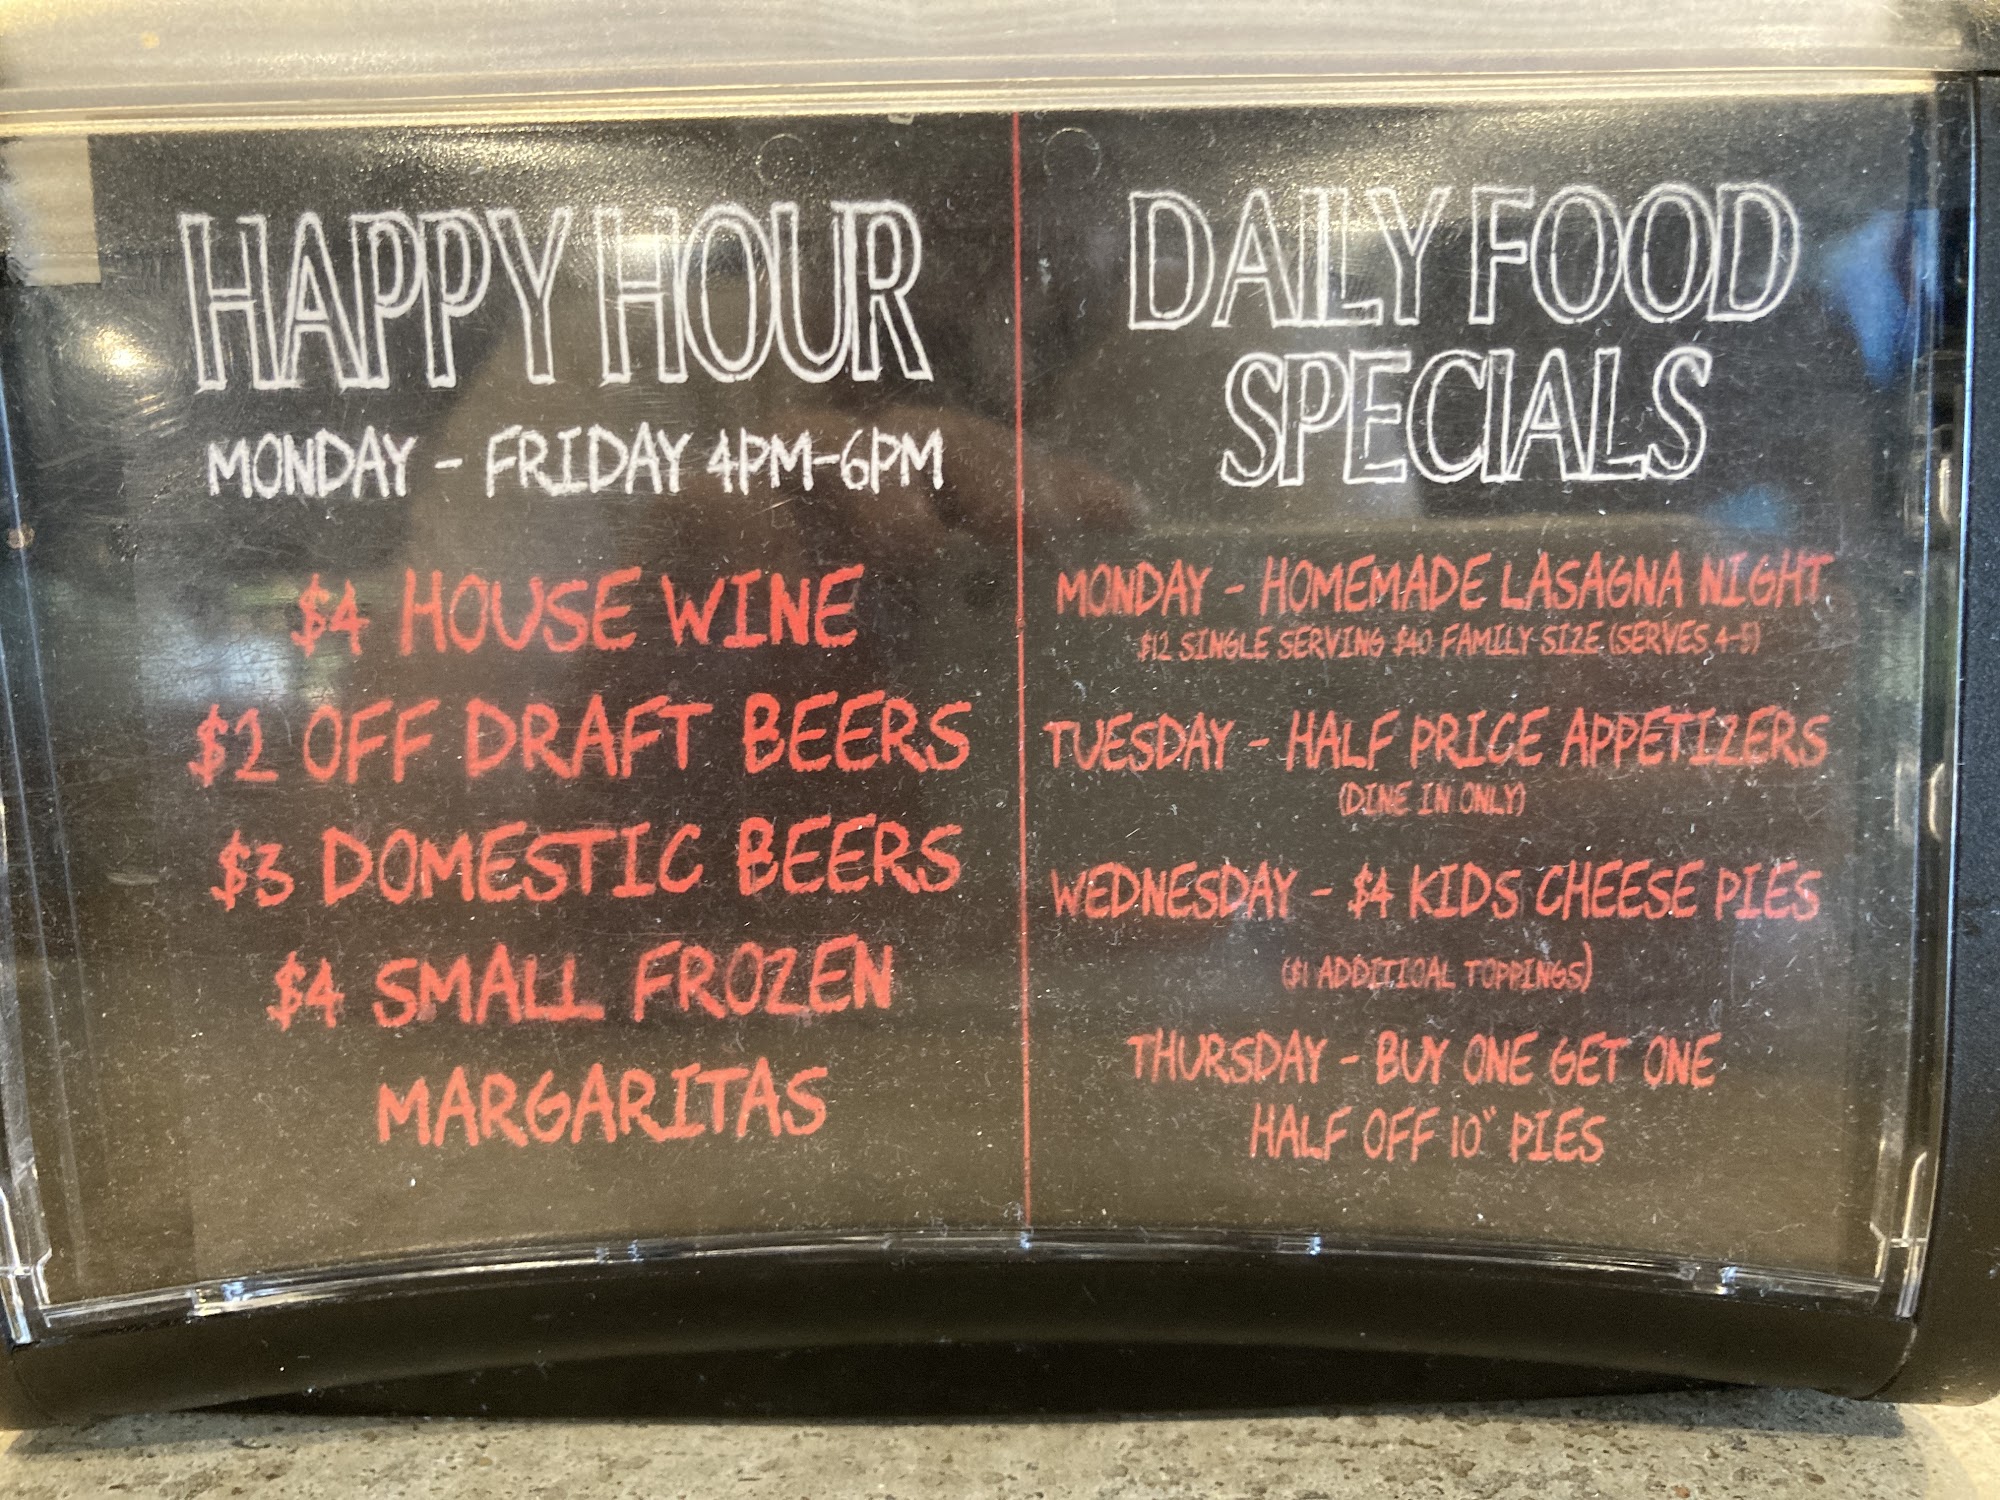 HAPPY HOUR
MONDAY - FRIDAY 4PM-6PM
$4 HOUSE WINE
$2 OFF DRAFT BEERS
$3 DOMESTIC BEERS
$4 SMALL FROZEN
MARGARITAS
DAILY FOOD
SPECIALS
MONDAY - HOMEMADE LASAGNA NIGHT
$12 SINGLE SERVING $40 FAMILY SIZE (SERVES 4-5)
TUESDAY - HALF PRICE APPETIZERS
(DINE IN ONLY)
WEDNESDAY - $4 KIDS CHEESE PIES
($1 ADDITIOAL TOPPINGS)
THURSDAY - BUY ONE GET ONE
HALF OFF 10" PIES